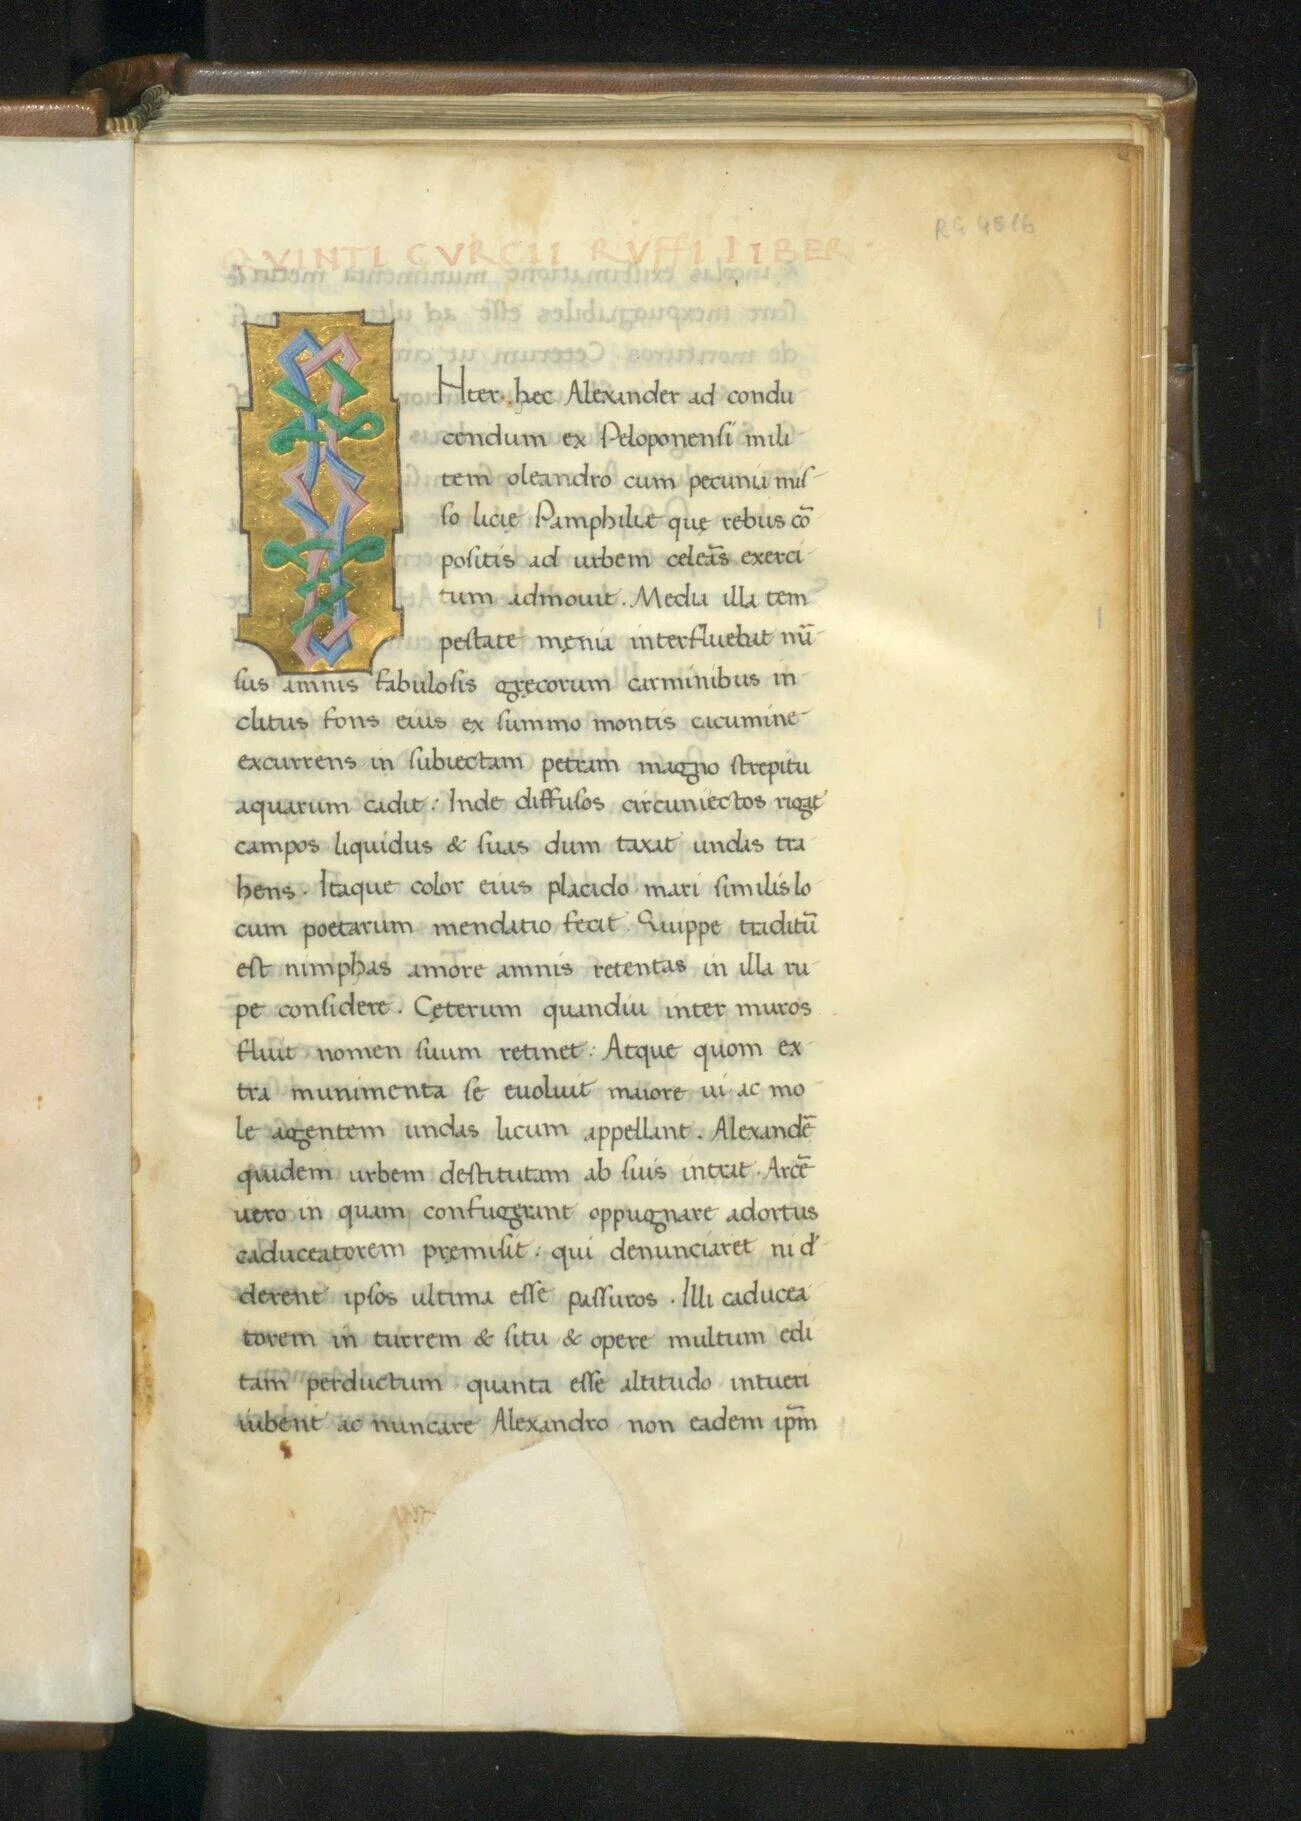 QVINTI CVRCII RVFFI LIBER
RG 4516
I
Nter hęc Alexander ad condu
cendum ex Peloponensi mili
tem oleandro cum pecunia mis
so licię Pamphiliæ quę rebus cō
positis ad urbem celeās exerci
tum admouit. Media illa tem
pestate męnia interfluebat mā
sus amnis fabulosis gręcorum carminibus in
clitus fons eius ex summo montis cacumine
excurrens in subiectam petram magno strepitu
aquarum cadit: Inde diffusos circuniectos rigat
campos liquidus & suas dum taxat undas tra
hens. Itaque color eius placido mari similis lo
cum poetarum mendatio fecit. Quippe traditū
est nimphas amore amnis retentas in illa ru
pe considere. Cęterum quandiu inter muros
fluit nomen suum retinet: Atque quom ex
tra munimenta se euoluit maiore ui ac mo
le agentem undas licum appellant. Alexandē
quidem urbem destitutam ab suis intrat. Arcē
uero in quam confugerant oppugnare adortus
caduceatorem pręmisit: qui denunciaret ni d
derent ipsos ultima esse passuros. Illi caducea
torem in turrem & situ & opere multum edi
tam perductum quanta esse altitudo intueri
iubent ac nuncare Alexandro non eadem ipm̄